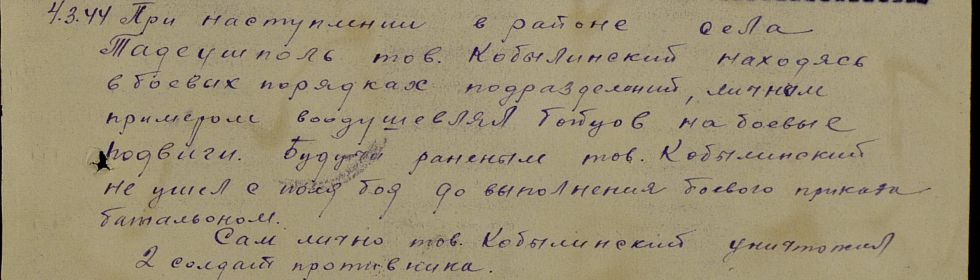 4.3.44 При наступлении в районе села
Тадеушполь тов. Кобылинский находясь
в боевых порядках подразделений, личным
примером воодушевлял бойцов на боевые
подвиги. Будучи раненым тов. Кобылинский
не ушел с поля боя до выполнения боевого приказа
батальоном.
Сам лично тов. Кобылинский уничтожил
2 солдат противника.